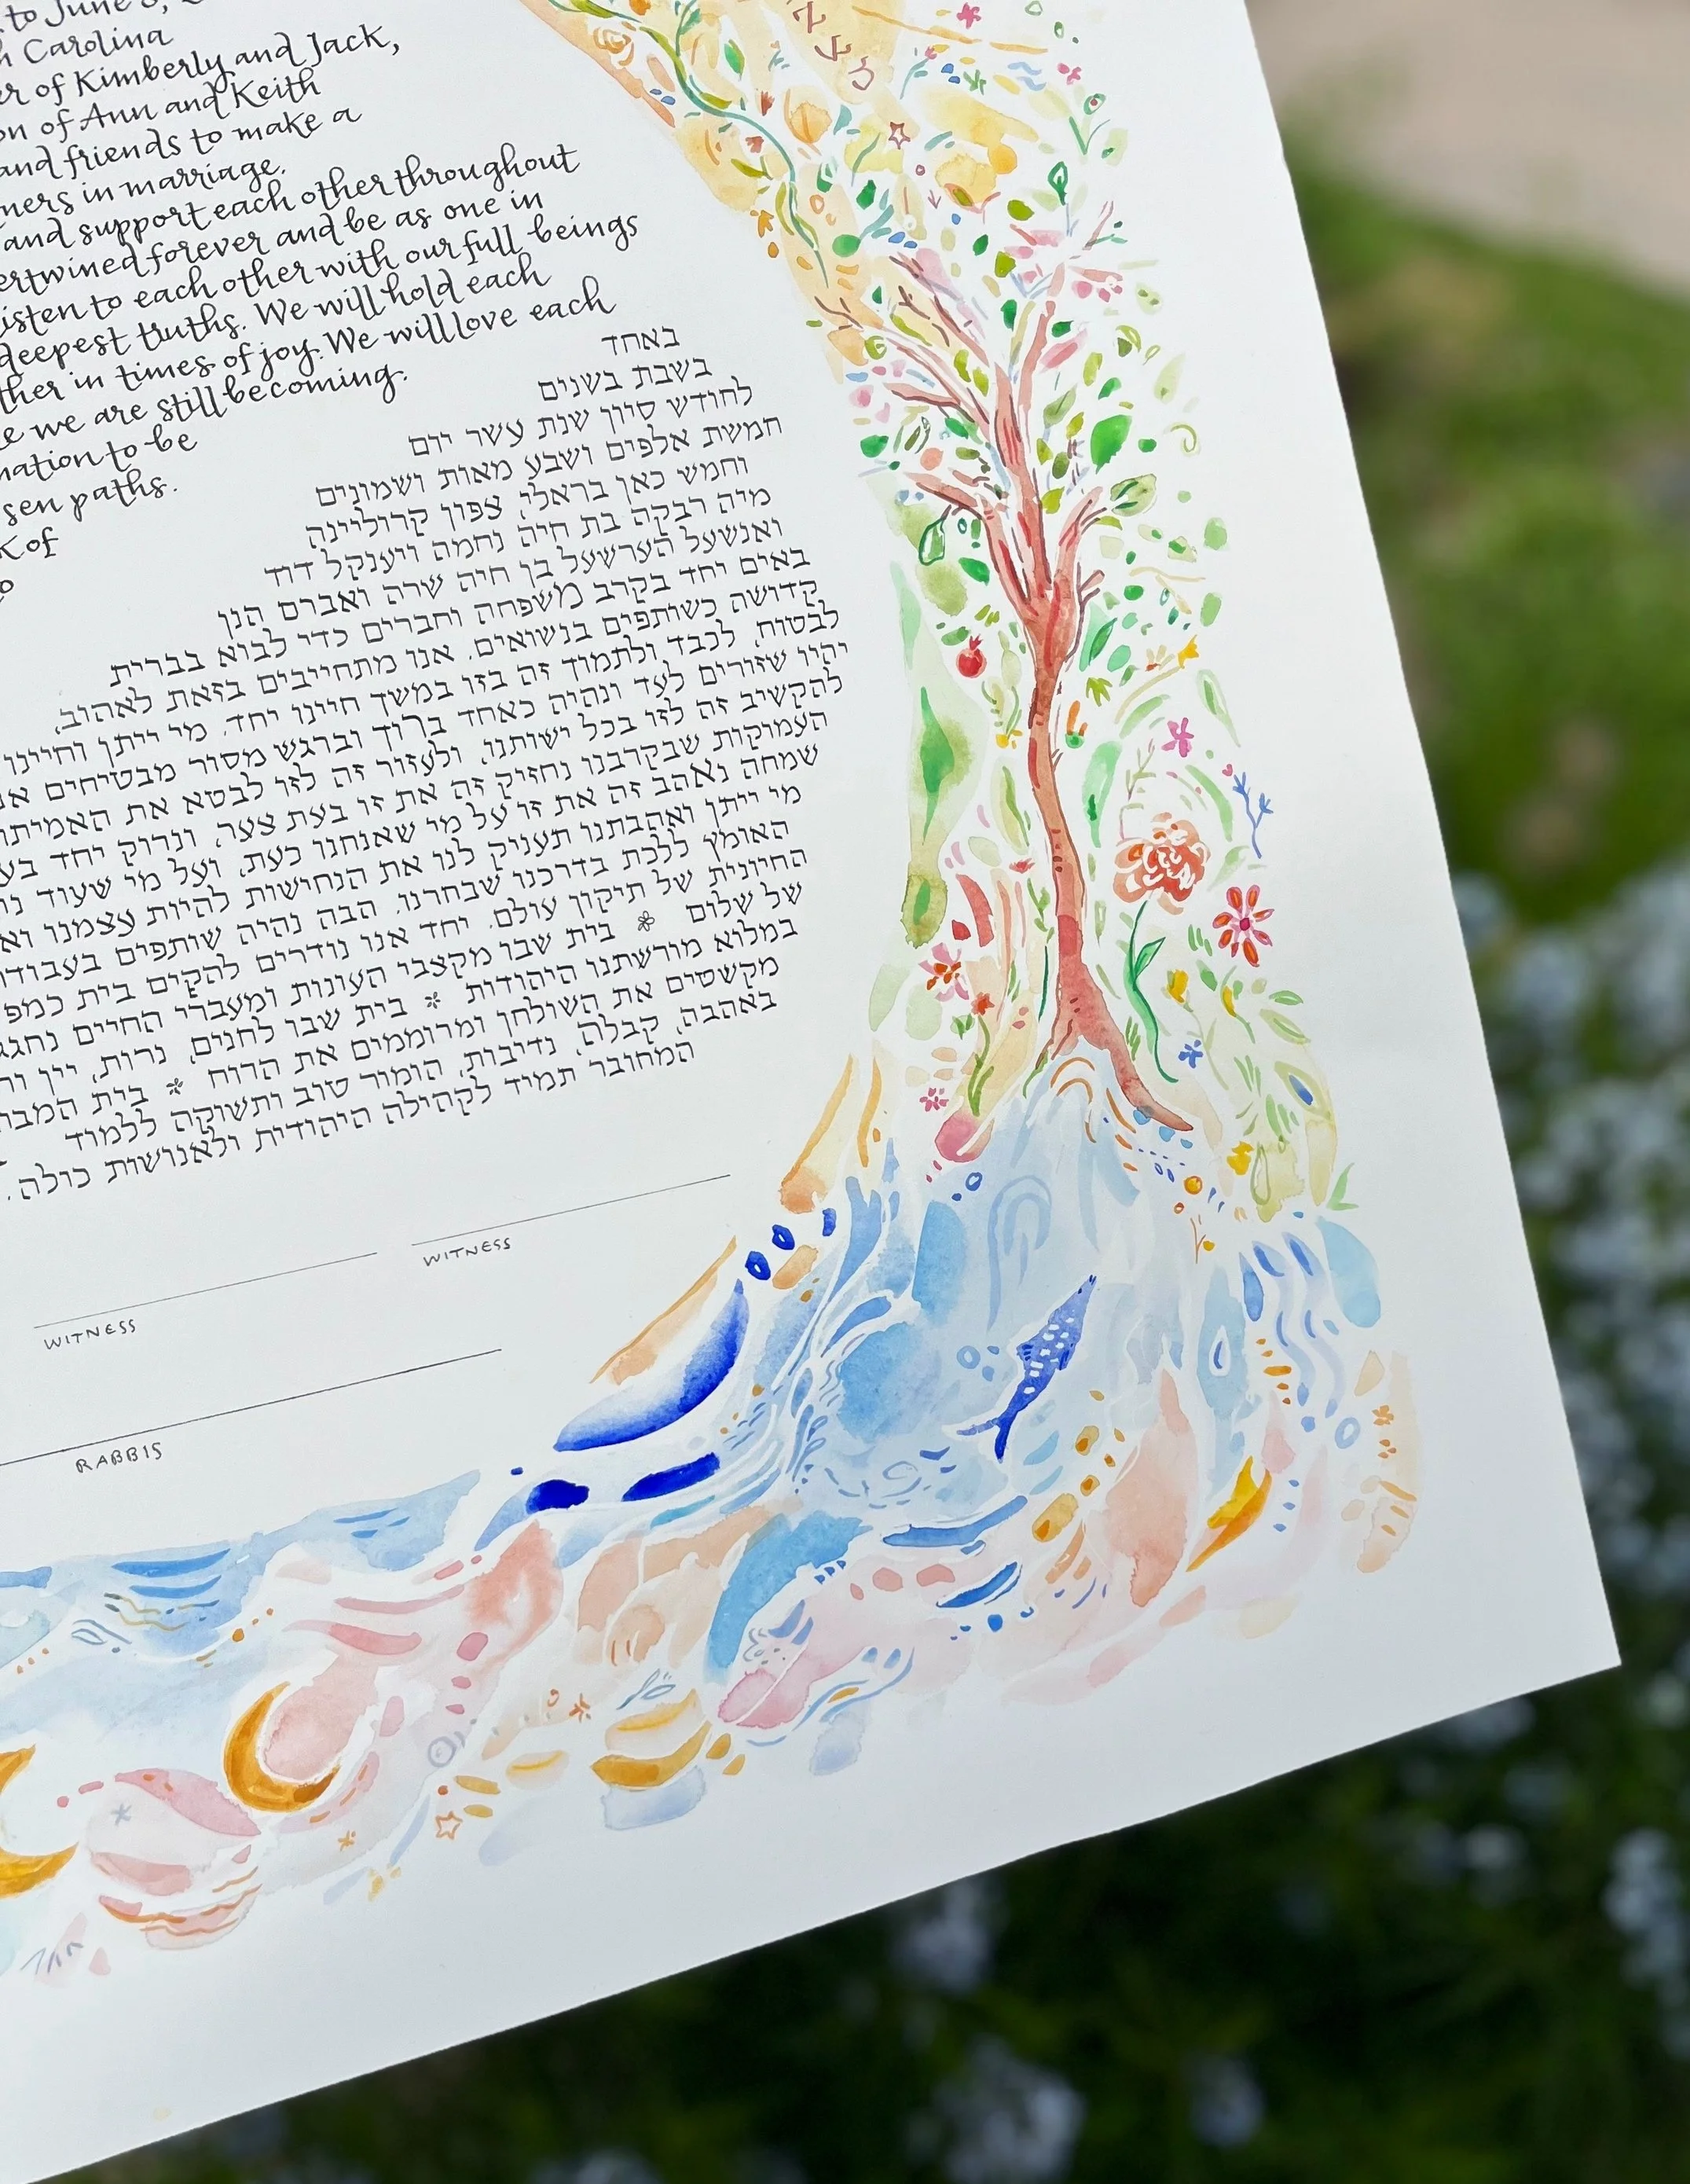 to June
Carolina
of Kimberly and Jack,
on of Ann and Keith
and friends to make a
ners in marriage.
and support each other throughout
ertwined forever and be as one in
isten to each other with our full beings
deepest truths. We will hold each
ther in times of joy. We will love each
e we are still becoming.
nation to be
sen paths.
k of
באחד
בשבת בשנים
לחודש סיון שנת עשר יום
חמשת אלפים ושבע מאות ושמונים
וחמש כאן בראלי, צפון קרוליינה
מיה רבקה בת חיה נחמה ויענקל דוד
ואנשעל הערשעל בן חיה שרה ואברם הנן
באים יחד בקרב משפחה וחברים כדי לבוא בברית
קדושה כשותפים בנשואים. אנו מתחייבים בזאת לאהוב,
לבטוח, לכבד ולתמוך זה בזו במשך חיינו יחד. מי ייתן וחיינו
יהיו שזורים לעד ונהיה כאחד ברוך וברגש מסור מבטיחים אנ
להקשיב זה לזו בכל ישותנו, ולעזור זה לזו לבטא את האמיתו
העמוקות שבקרבנו נחזיק זה את זו בעת צער, ונרוק יחד בע
שמחה נאהב זה את זו על מי שאנחנו כעת, ועל מי שעוד ני
מי ייתן ואהבתנו תעניק לנו את הנחישות להיות עצמנו וא
האומץ ללכת בדרכנו שבחרנו. הבה נהיה שותפים בעבודו
החיונית של תיקון עולם. יחד אנו נודרים להקים בית כמפ
של שלום בית שבו מקצבי העונות ומעברי החיים נחגג
במלוא מורשתנו היהודות בית שבו לחנים, נרות, יין וח
מקשטים את השולחן ומרוממים את הרוח בית המבו
באהבה, קבלה, נדיבות, הומור טוב ותשוקה ללמוד
המחובר תמיד לקהילה היהודית ולאנושות כולה.
WITNESS
WITNESS
RABBIS